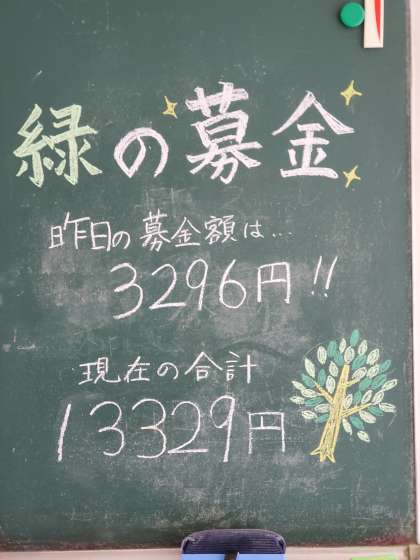 緑の募金
昨日の募金額は...
3296円!!
現在の合計
13329円